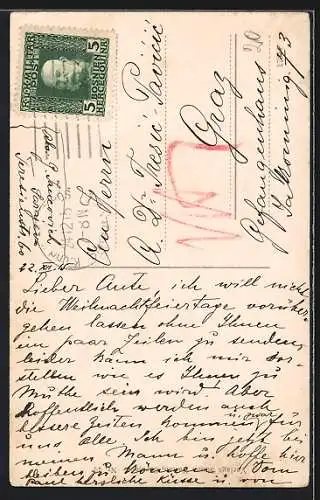 K.U.K. MILITÄR POST
5 BOSNIEN HERCEGOVINA 5
20
An Herrn
A. Dr. Tresić-Pavičić
Graz
Gefangenhaus
22. XII.
Lieber Ante, ich will nicht
die Weihnachtsfeiertage vorüber-
gehen lassen ohne Ihnen
ein paar Zeilen zu senden,
leider kann ich mir vor-
stellen wie es Ihnen zu
Muthe sein wird! Aber
hoffentlich werden auch
bessere Zeiten kommen für
uns Alle. Ich bin jetzt bei
meinem Mann u. hoffe hier
bleiben zu können. Vom
Paul herzliche Küsse u. von